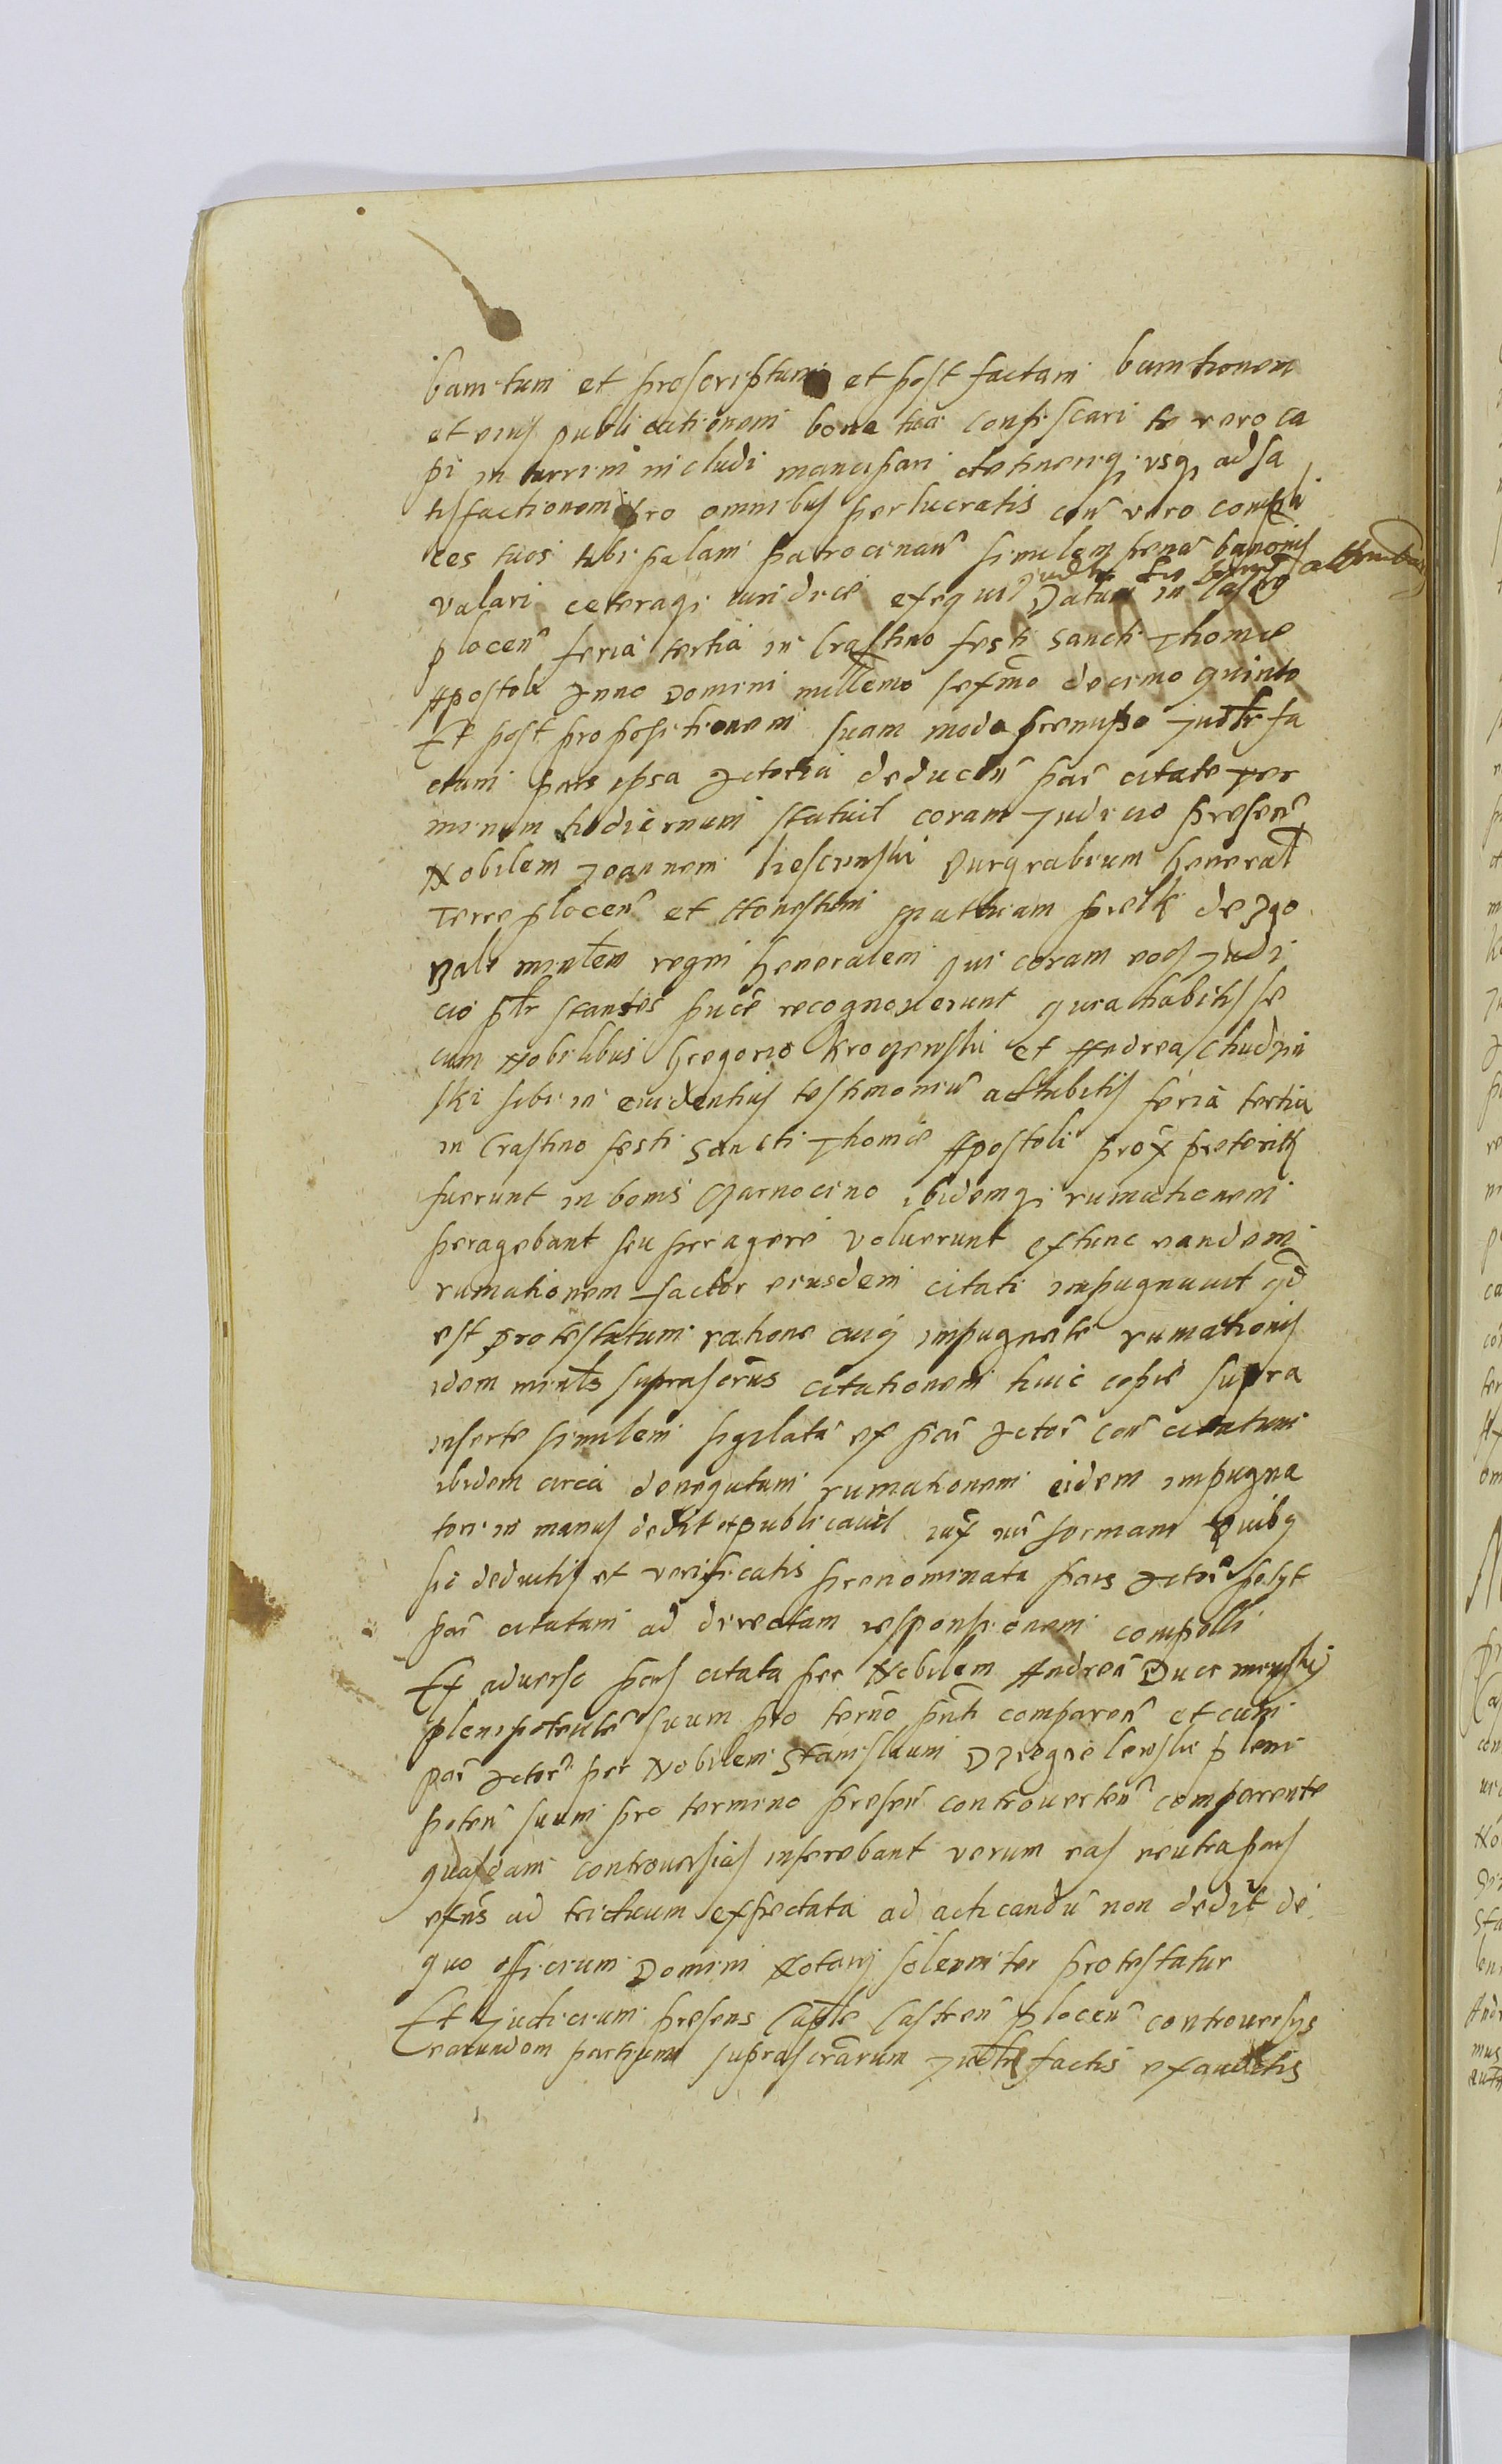 banitum et proscriptum et post factam banitionem
et eius publicationem bona tua confiscari te vero ca
pi in turrim includi mancipari detineriq; usq; ad sa
tisfactionem pro omnibus perlucratis con vero compli
ces tuos tibi palam patrocinan similem pena banonis
valari ceteraq; iuridice exequi Datum in Castro
plocen feria tertia in Crastino festi Sancti Thomæ
Apostoli Anno Domini millemo sexmo decimo quinto
Et post propositionem suam modo premisso Judlr fa
ctam pars ipsa Actorea deducen par citate Ter
minum hodiernum statuit coram Judicio presen
Nobilem Joannem Burgrabium General
Terre plocen et Honestum Mathiam de
minlem regni Generalem qui coram eod Judi
cio plr stantes pnce recognoverunt quia habitis se
cum Nobilibus Gregorio et Andrea Chudzin
ski sibi in evidentius testimoniu adhibitis feria tertia
in Crastino festi Sancti Thomæ Apostoli prox preteritis
fuerunt in bonis ibidemq; rumationem
peragebant seu peragere voluerunt extunc eandem
rumationem factor eiusdem citati impugnavit qd
est protestatum ratione cuiq impugnate rumationis
idem minlis suprascrus citationem huic copie supra
inserte similem sigilata ex par Actor con citatum
ibidem circa denegatam rumationem eidem impugna
tori in manus dedit et publicavit iux formam Quibq
sic deductis et verificatis prenominata pars Actor petyt
par citatam ad directam responsionem compelli
Et adverso pars citata per Nobilem Andrea
plenipotente suum pro termo pnti comparen et cum
par Actor per Nobilem Stanislaum pleni
poten suum pro termino presen controverten comparente
quasdam controversias inferebant verum eas neutra pars
exns ad triduum expectata ad acticandu non dedit de
quo officium Domini Notarij solenniter protestatur
Et Judicium presens Caple Castren plocen controversys
earundem partium suprascrarum Judlr factis exauditis